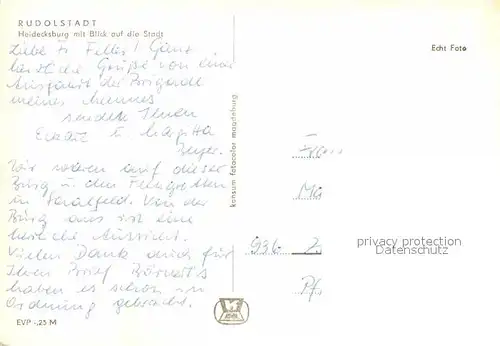 RUDOLSTADT
Heidecksburg mit Blick auf die Stadt
Echt Foto
Liebe Fr. Feller! Ganz
herzliche Grüße von einer
Ausfahrt der Brigade
meines Mannes
sendete Ihnen
u. Margitta
Beyer.
Wir waren auf dieser
Burg u. den Feengrotten
in Saalfeld. Von der
Burg aus ist eine
herrliche Aussicht.
Vielen Dank auch für
Ihren Brief
haben es schon in
Ordnung gebracht.
EVP -,25 M
konsum fotocolor magdeburg
Frau
Ma
936 Z
Pf
privacy protection
Datenschutz